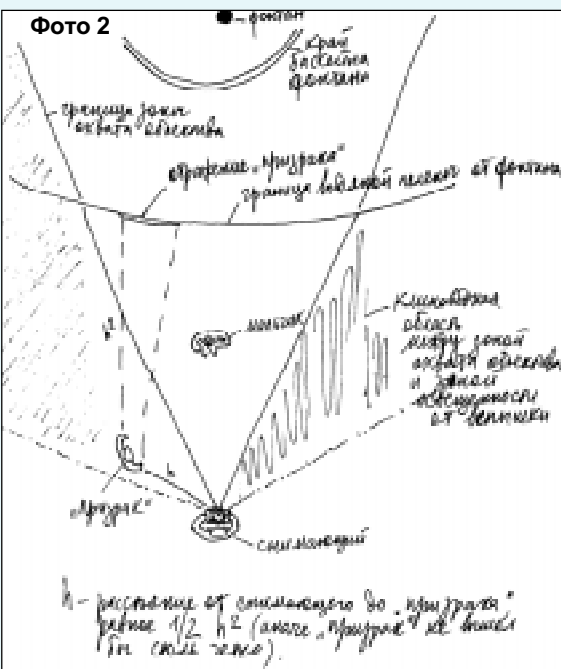 Фото 2
- фонтан
край
фонтана
граница зоны
охвата объектива
отражение „призрака“
граница водяной пелены от фонтана
мальчик
h²
клиновидная
область
между зоной
охвата объектива
и зоной
освещенности
от вспышки
h
„призрак“
снимающий
h - расстояние от снимающего до „призрака“
равное 1/2 h² (иначе „призрак“ не вышел
бы столь четко).